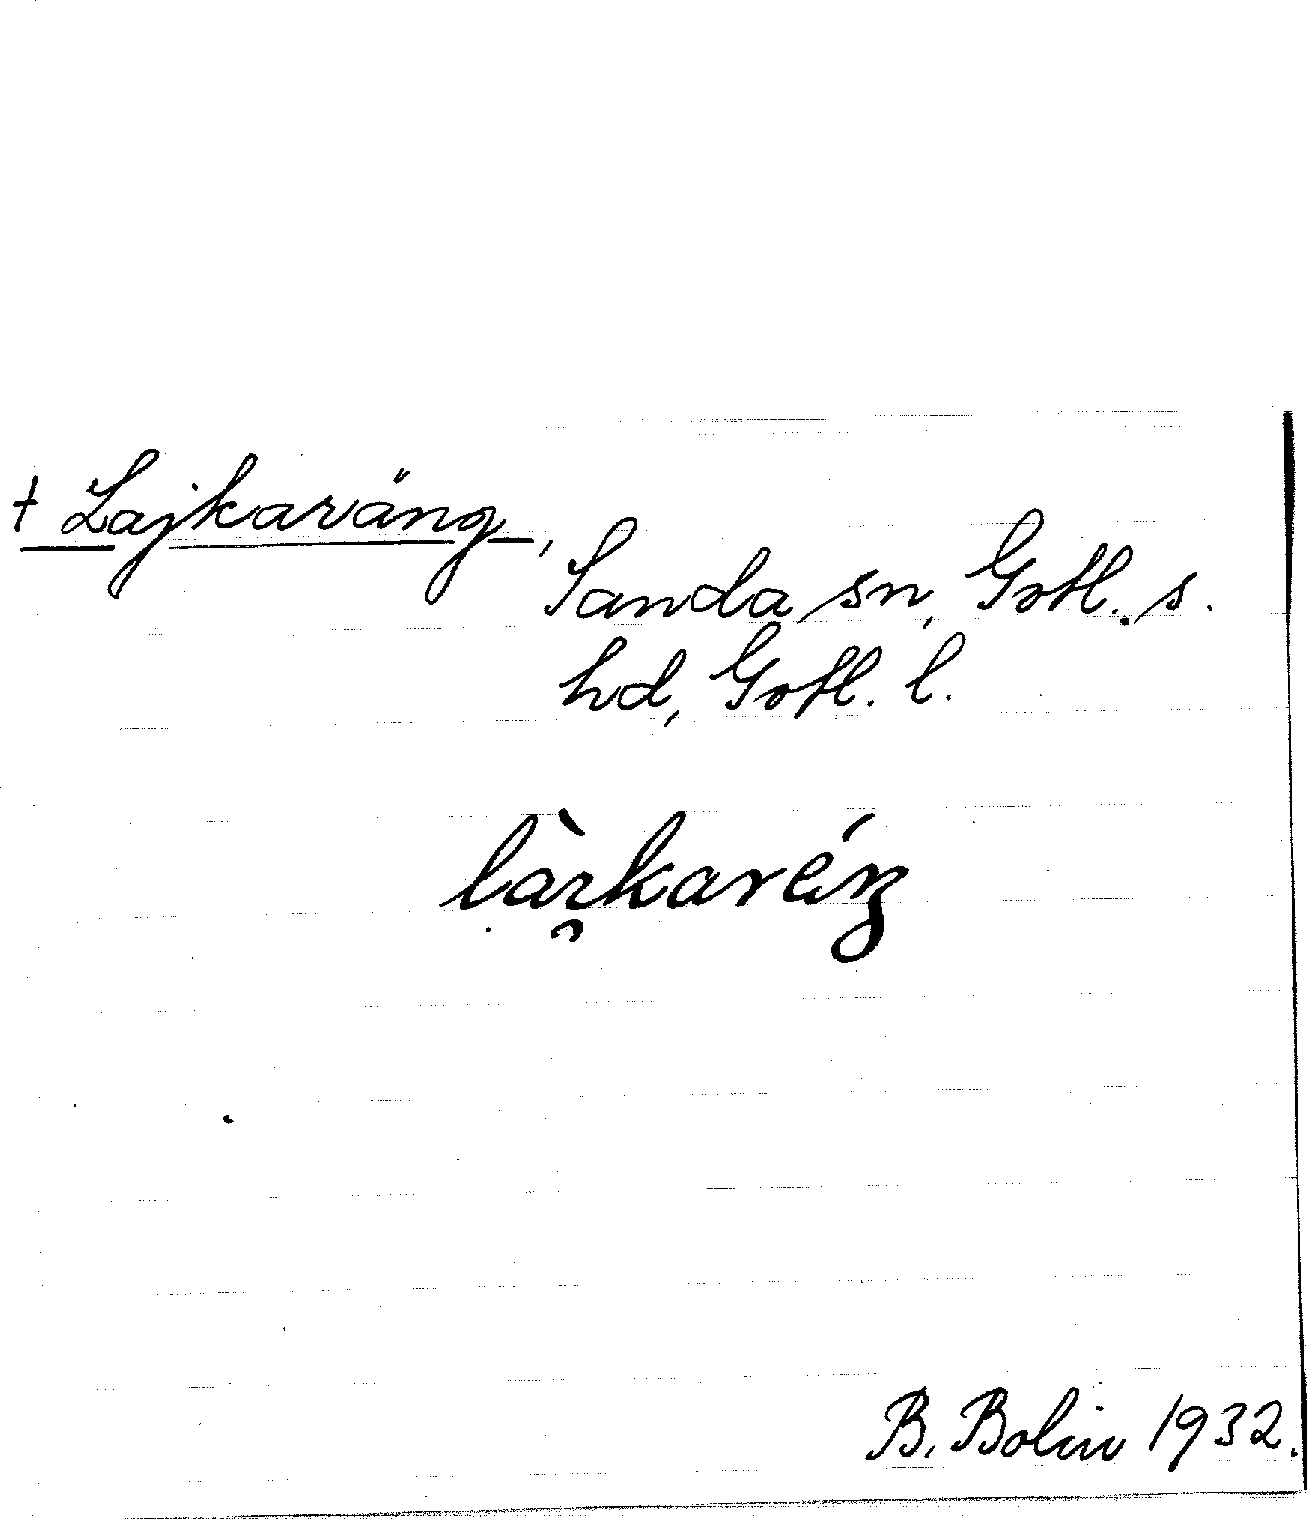 + Lajkaräng,
Sanda sn, Gotl. s.
hd, Gotl. l.
B. Bolin 1932.